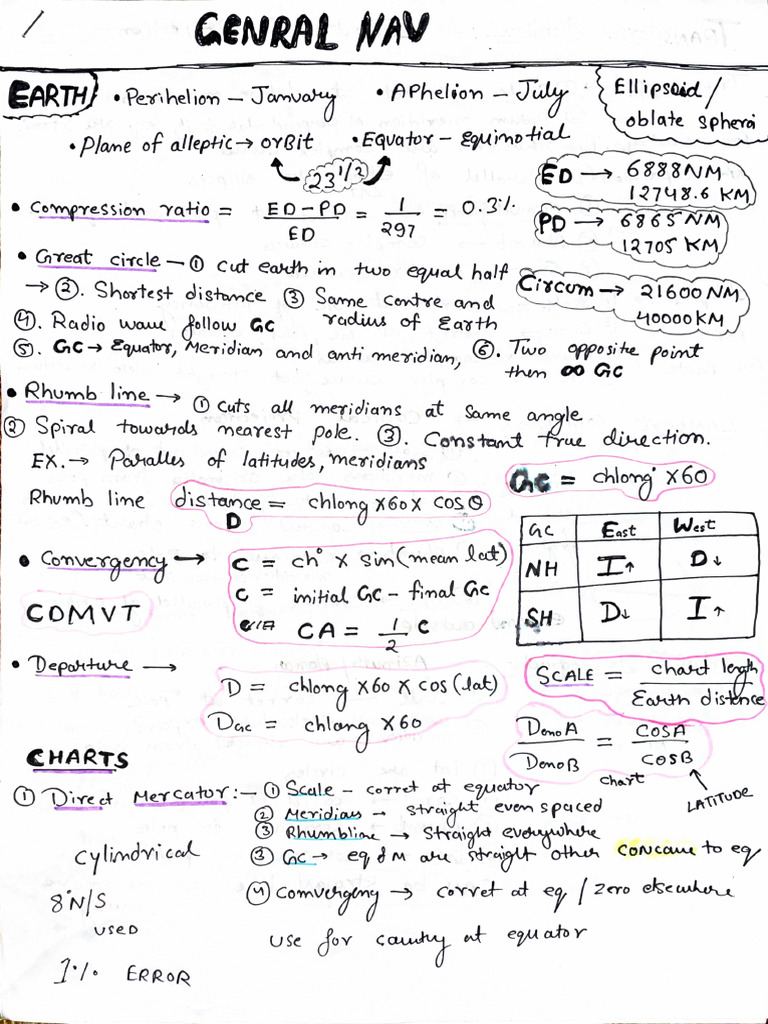 /
GENRAL NAV
EARTH • Perihelion – January • APhelion – July Ellipsoid /
oblate spheroi
• Plane of alleptic → orBit • Equator – Equinotial
23 1/2
ED → 6888NM
12748.6 KM
• Compression ratio = ED-PD / ED = 1 / 297 = 0.3%
PD → 6865 NM
12705 KM
• Great circle – ① Cut earth in two equal half
→ ②. Shortest distance ③ Same centre and radius of Earth
Circum → 21600 NM
40000 KM
④. Radio wave follow GC
⑤. GC → Equator, Meridian and anti meridian, ⑥. Two opposite point
then ∞ GC
• Rhumb line → ① Cuts all meridians at same angle
② Spiral towards nearest pole. ③. Constant true direction.
EX. → Paralles of latitudes, meridians
GC = chlong° X60
Rhumb line distance = chlong X60 X cos θ
D
GC East West
NH I↑ D↓
SH D↓ I↑
• Convergency → C = ch° X sin(mean lat)
C = initial GC – final GC
CDMVT
CA = 1/2 C
• Departure → D = chlong X60 X cos (lat)
DGC = chlong X60
SCALE = chart length / Earth distence
DenoA / DenoB = COSA / COSB
chart
LATITUDE
CHARTS
① Direct Mercator:– ① Scale – corret at equator
② Meridians → straight even spaced
③ Rhumbline → Straight everywhere
Cylindrical
③ GC → eq & M are straight other concave to eq
8°N/S
USED
④ Comvergeny → corret at eq / zero elsewhere
use for country at equator
1% ERROR